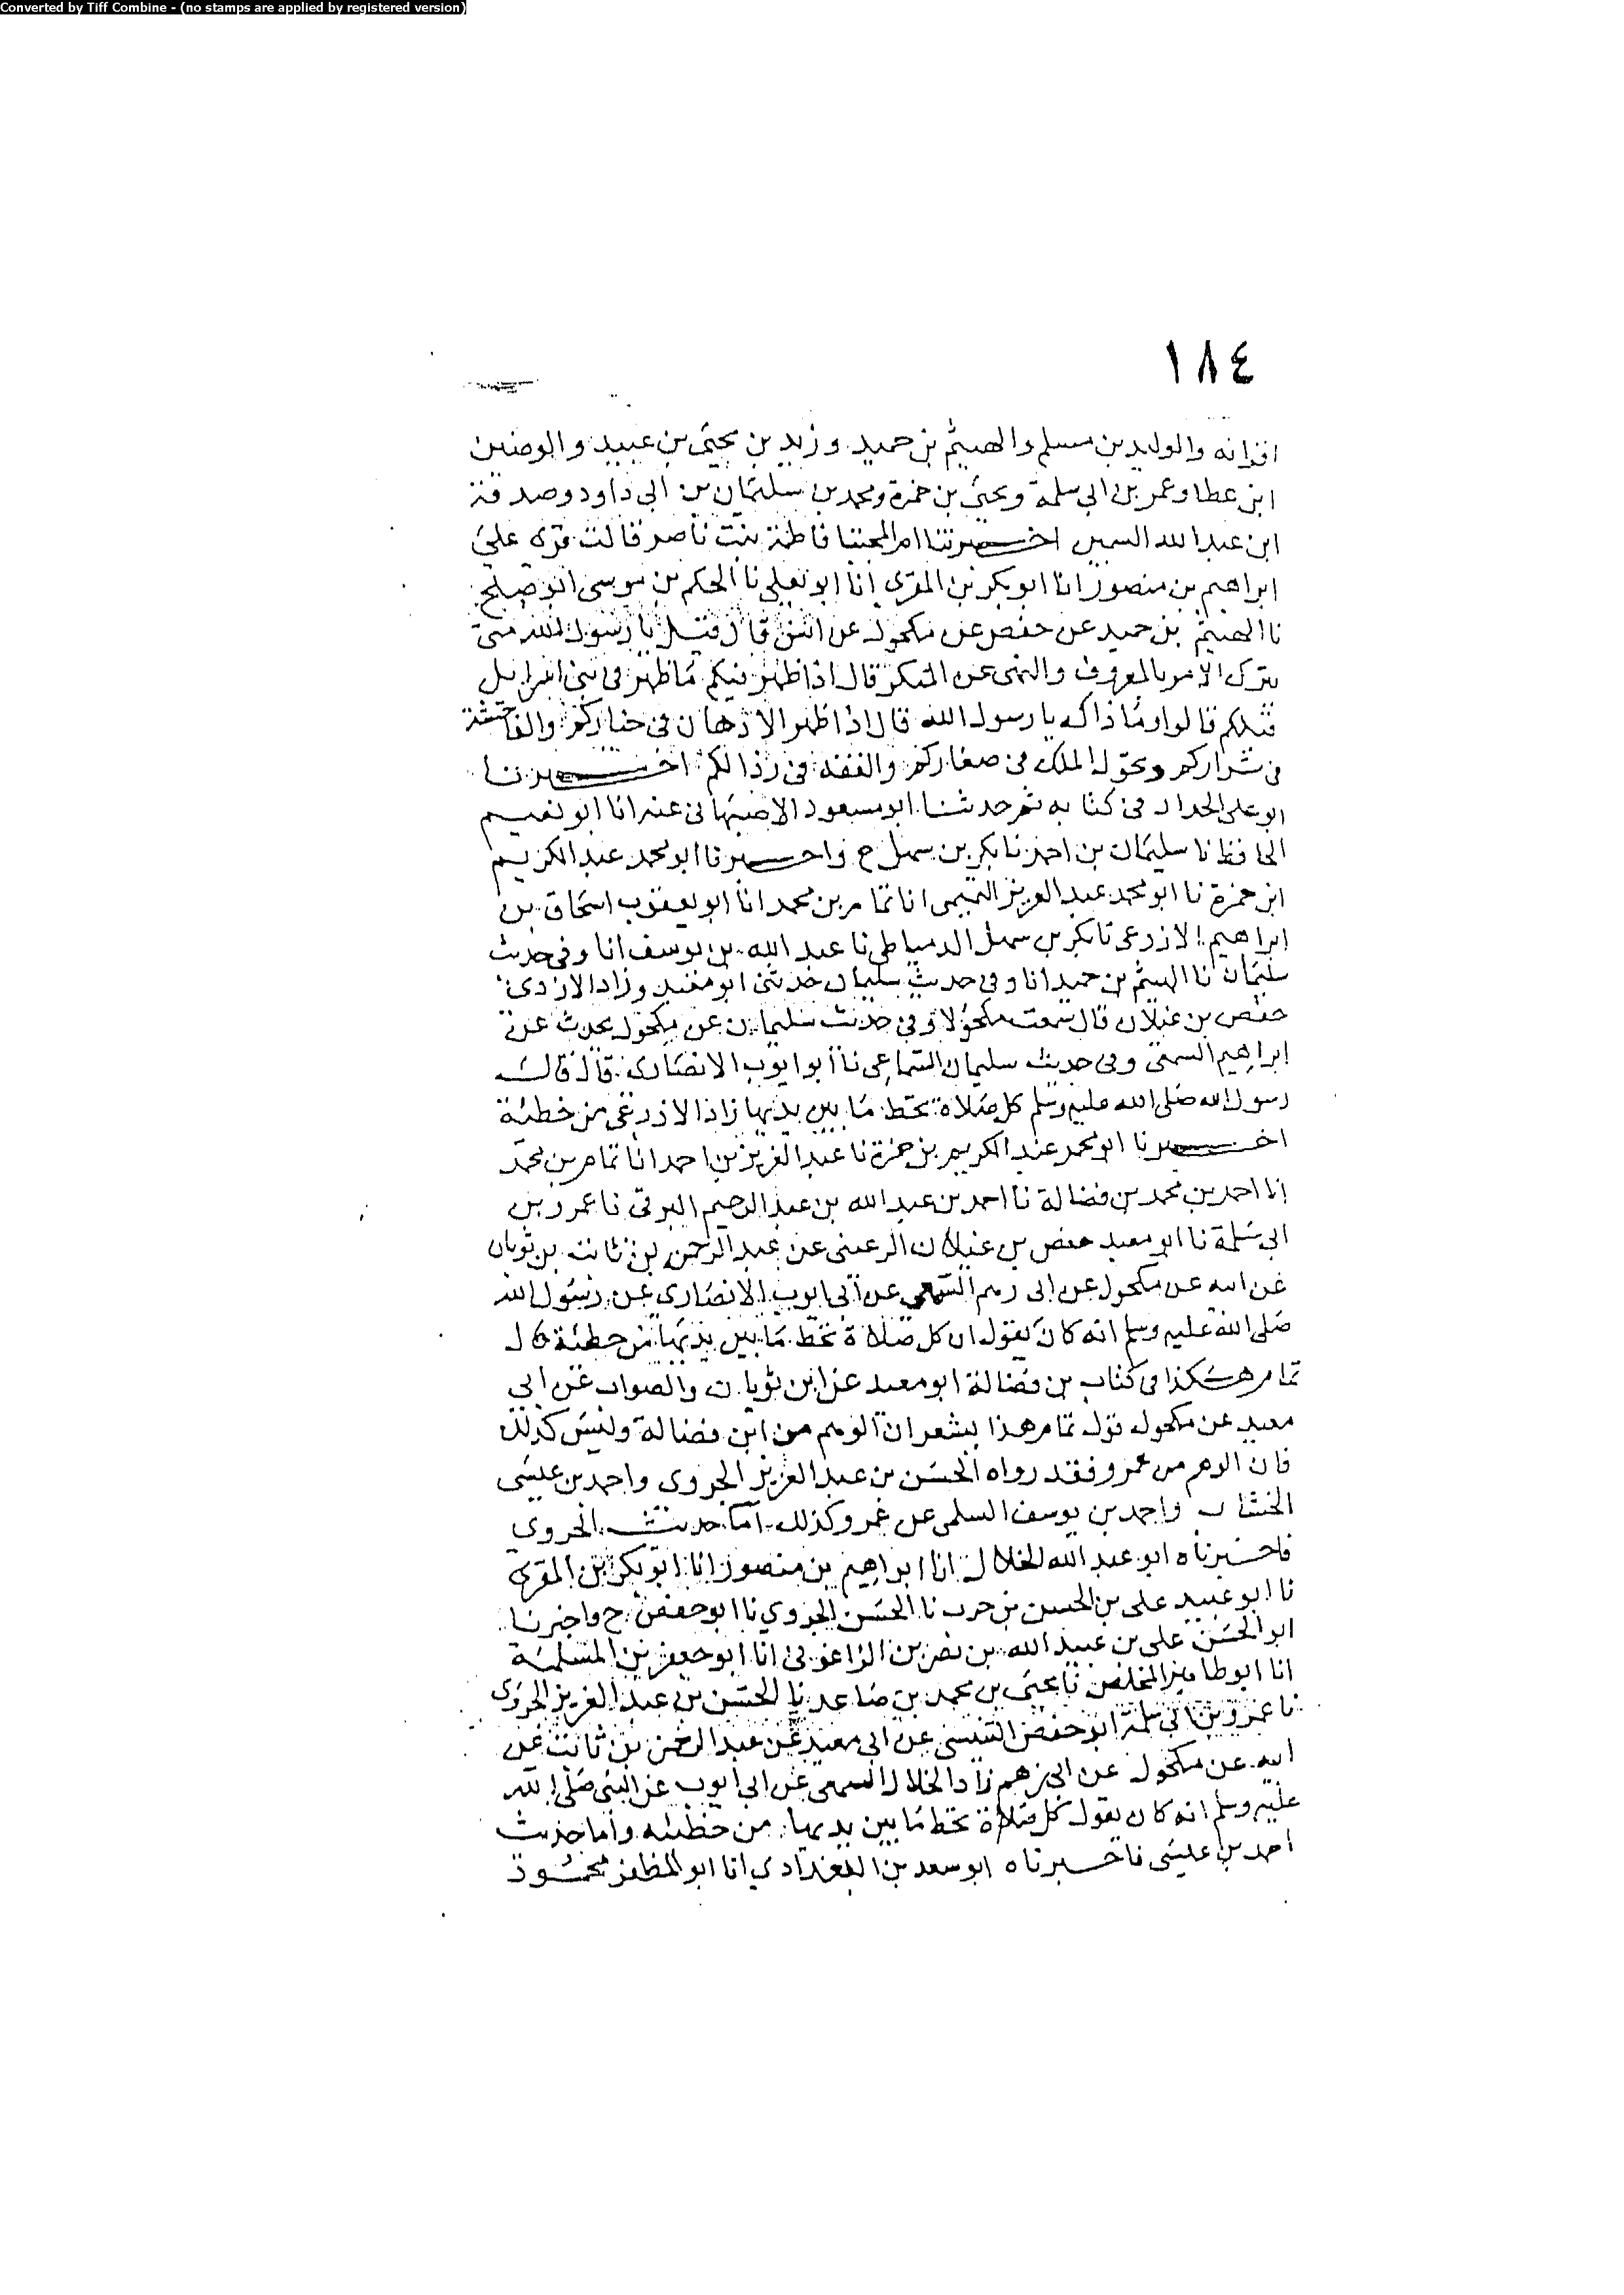 Converted by Tiff Combine - (no stamps are applied by registered version)
١٨٤
اقرانه والوليد بن مسلم والهيثم بن حميد وزيد بن يحيى بن عبيد والوضين
ابن عطا وعمر بن ابي سلمة ويحيى بن حمزة ومحمد بن سليمان بن ابي داود وصدقة
ابن عبد الله السمين اخبرتنا ام المجتبا فاطمة بنت ناصر قالت قرى على
ابراهيم بن منصور انا ابو بكر بن المقرى انا ابو يعلى نا الحكم بن موسى ابو صالح
نا الهيثم بن حميد عن حفص عن مكحول عن انس قال قيل يا رسول الله متى
يترك الامر بالمعروف والنهى عن المنكر قال اذا ظهر فيكم ما ظهر في بنى اسرايل
قبلكم قالوا وما ذاك يا رسول الله قال اذا ظهر الادهان في خياركم والفاحشة
في شراركم وتحول الملك في صغاركم والفقه في رذالكم اخبرنا
ابو على الحداد في كتابه ثم حدثنا ابو مسعود الاصبهاني عنه انا ابو نعيم
الحافظ نا سليمان بن احمد نا بكر بن سهل ح واخبرنا ابو محمد عبد الكريم
ابن حمزة نا ابو محمد عبد العزيز التميمى انا تمام بن محمد انا ابو يعقوب اسحاق بن
ابراهيم الاذرعى نا بكر بن سهل الدمياطى نا عبد الله بن يوسف انا وفى حديث
سليمان نا الهيثم بن حميد انا وفى حديث سليمان حدثنى ابو معيد وزاد الاذرعى
حفص بن غيلان قال سمعت مكحولا وفي حديث سليمان عن مكحول يحدث عن
ابراهيم السمعى وفى حديث سليمان السماعى نا ابو ايوب الانصارى قال قال
رسول الله صلى الله عليه وسلم كل صلاة تحط ما بين يديها زاد الاذرعى من خطئة
اخبرنا ابو محمد عبد الكريم بن حمزة نا عبد العزيز بن احمد انا تمام بن محمد
انا احمد بن محمد بن فضالة نا احمد بن عبد الله بن عبد الرحيم البرقى نا عمرو بن
ابى سلمة نا ابو معيد حفص بن غيلان الرعينى عن عبد الرحمن بن ثابت بن ثوبان
عن ابيه عن مكحول عن ابى رهم السمعى عن ابى ايوب الانصارى عن رسول الله
صلى الله عليه وسلم انه كان يقول ان كل صلاة تحط ما بين يديها من خطئة قال
تمام هكذا في كتاب بن فضالة ابو معيد عن ابن ثوبان والصواب عن ابى
معيد عن مكحول قول تمام هذا يشعر ان الوهم من ابن فضالة وليس كذلك
فان الوهم من عمرو فقد رواه الحسن بن عبد العزيز الجروى واحمد بن عيسى
الخشاب واحمد بن يوسف السلمى عن عمرو كذلك اما حديث الجروي
فاخبرناه ابو عبد الله الخلال انا ابراهيم بن منصور انا ابو بكر بن المقرى
نا ابو عبيد على بن الحسين بن حرب نا الحسن الجروي نا ابو حفص ح واخبرنا
ابو الحسن على بن عبيد الله بن نصر بن الزاغوني انا ابو جعفر بن المسلمة
انا ابو طاهر المخلص نا يحيى بن محمد بن صاعد نا الحسن بن عبد العزيز الجروى
نا عمرو بن ابى سلمة ابو حفص التنيسى عن ابى معيد عن عبد الرحمن بن ثابت عن
ابيه عن مكحول عن ابى رهم زاد الخلال السمعى عن ابى ايوب عن النبى صلى الله
عليه وسلم انه كان يقول كل صلاة تحط ما بين يديها من خطئه واما حديث
احمد بن عيسى فاخبرناه ابو سعد بن البغدادي انا ابو المظفر محمود